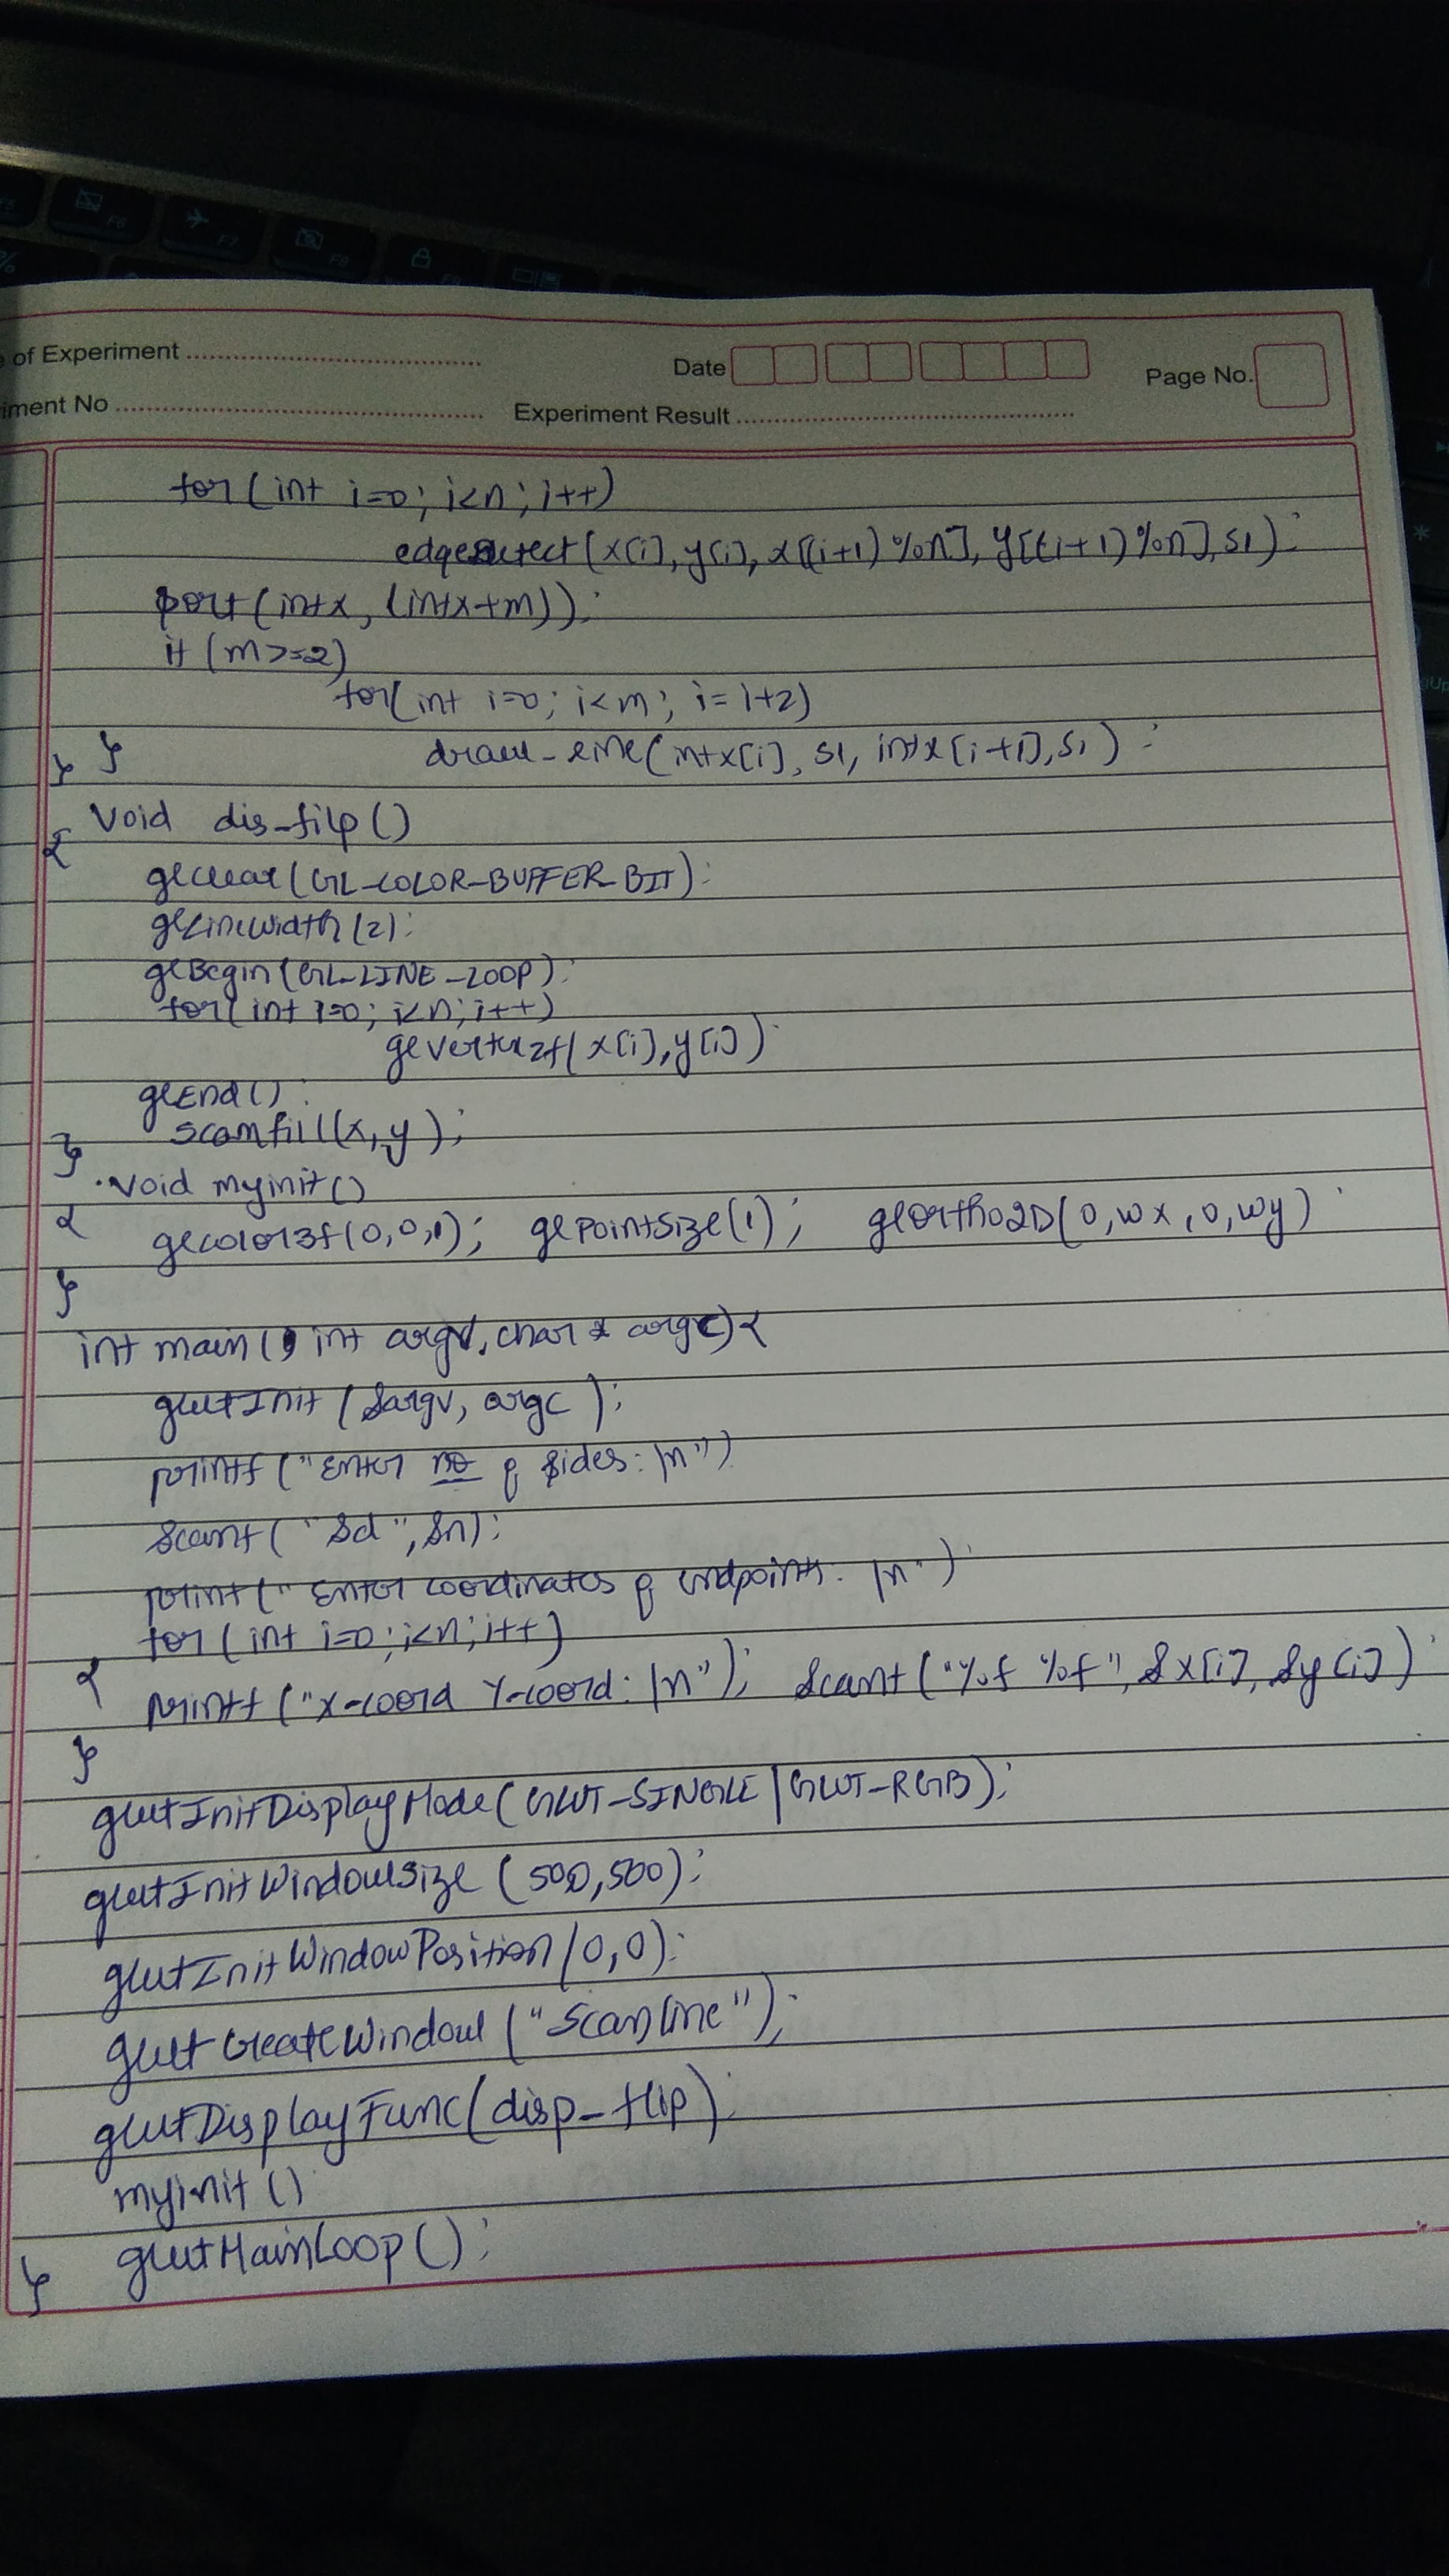 F6 F7 F8
%
e of Experiment
Date
Page No.
iment No
Experiment Result
for(int i=0; i<n; i++)
edgedetect(x[i], y[i], x[(i+1)%n], y[(i+1)%n], s1);
sort(intx, (intx+m));
if (m>=2)
for(int i=0; i<m; i=i+2)
draw_line(intx[i], s1, intx[i+1], s1);
} }
void dis_filp()
{
glclear(GL_COLOR_BUFFER_BIT);
glLineWidth(2);
glBegin(GL_LINE_LOOP);
for(int i=0; i<n; i++)
glVertex2f(x[i], y[i]);
glEnd();
scanfill(x, y);
}
void myinit()
{
glcolor3f(0,0,1); glPointSize(1); glOrtho2D(0,wx,0,wy);
}
int main( int argv, char * argc){
glutInit(&argv, argc);
printf("Enter no of sides: \n");
scanf("&d", &n);
printf("Enter coordinates of endpoints: \n");
for(int i=0; i<n; i++)
{
printf("X-coord Y-coord: \n"); scanf("%f %f", &x[i], &y[i]);
}
glutInitDisplayMode(GLUT_SINGLE|GLUT_RGB);
glutInitWindowSize(500,500);
glutInitWindowPosition(0,0);
glutCreateWindow("Scanline");
glutDisplayFunc(disp_flip);
myinit()
glutMainLoop();
}